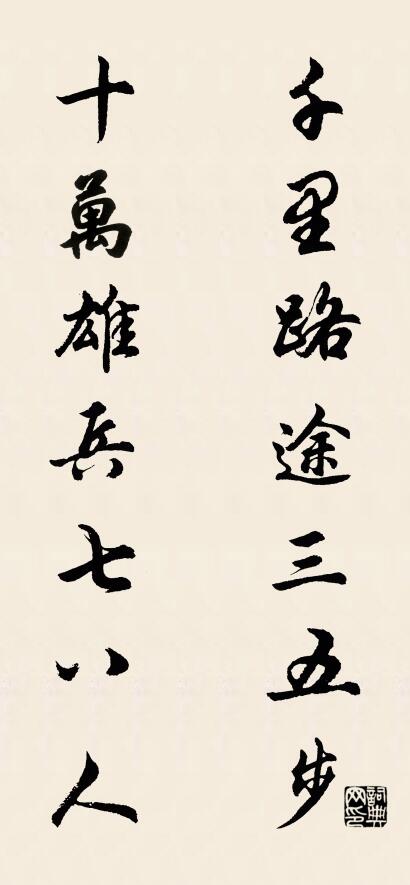 千里路途三五步
十萬雄兵七八人
詞典网印